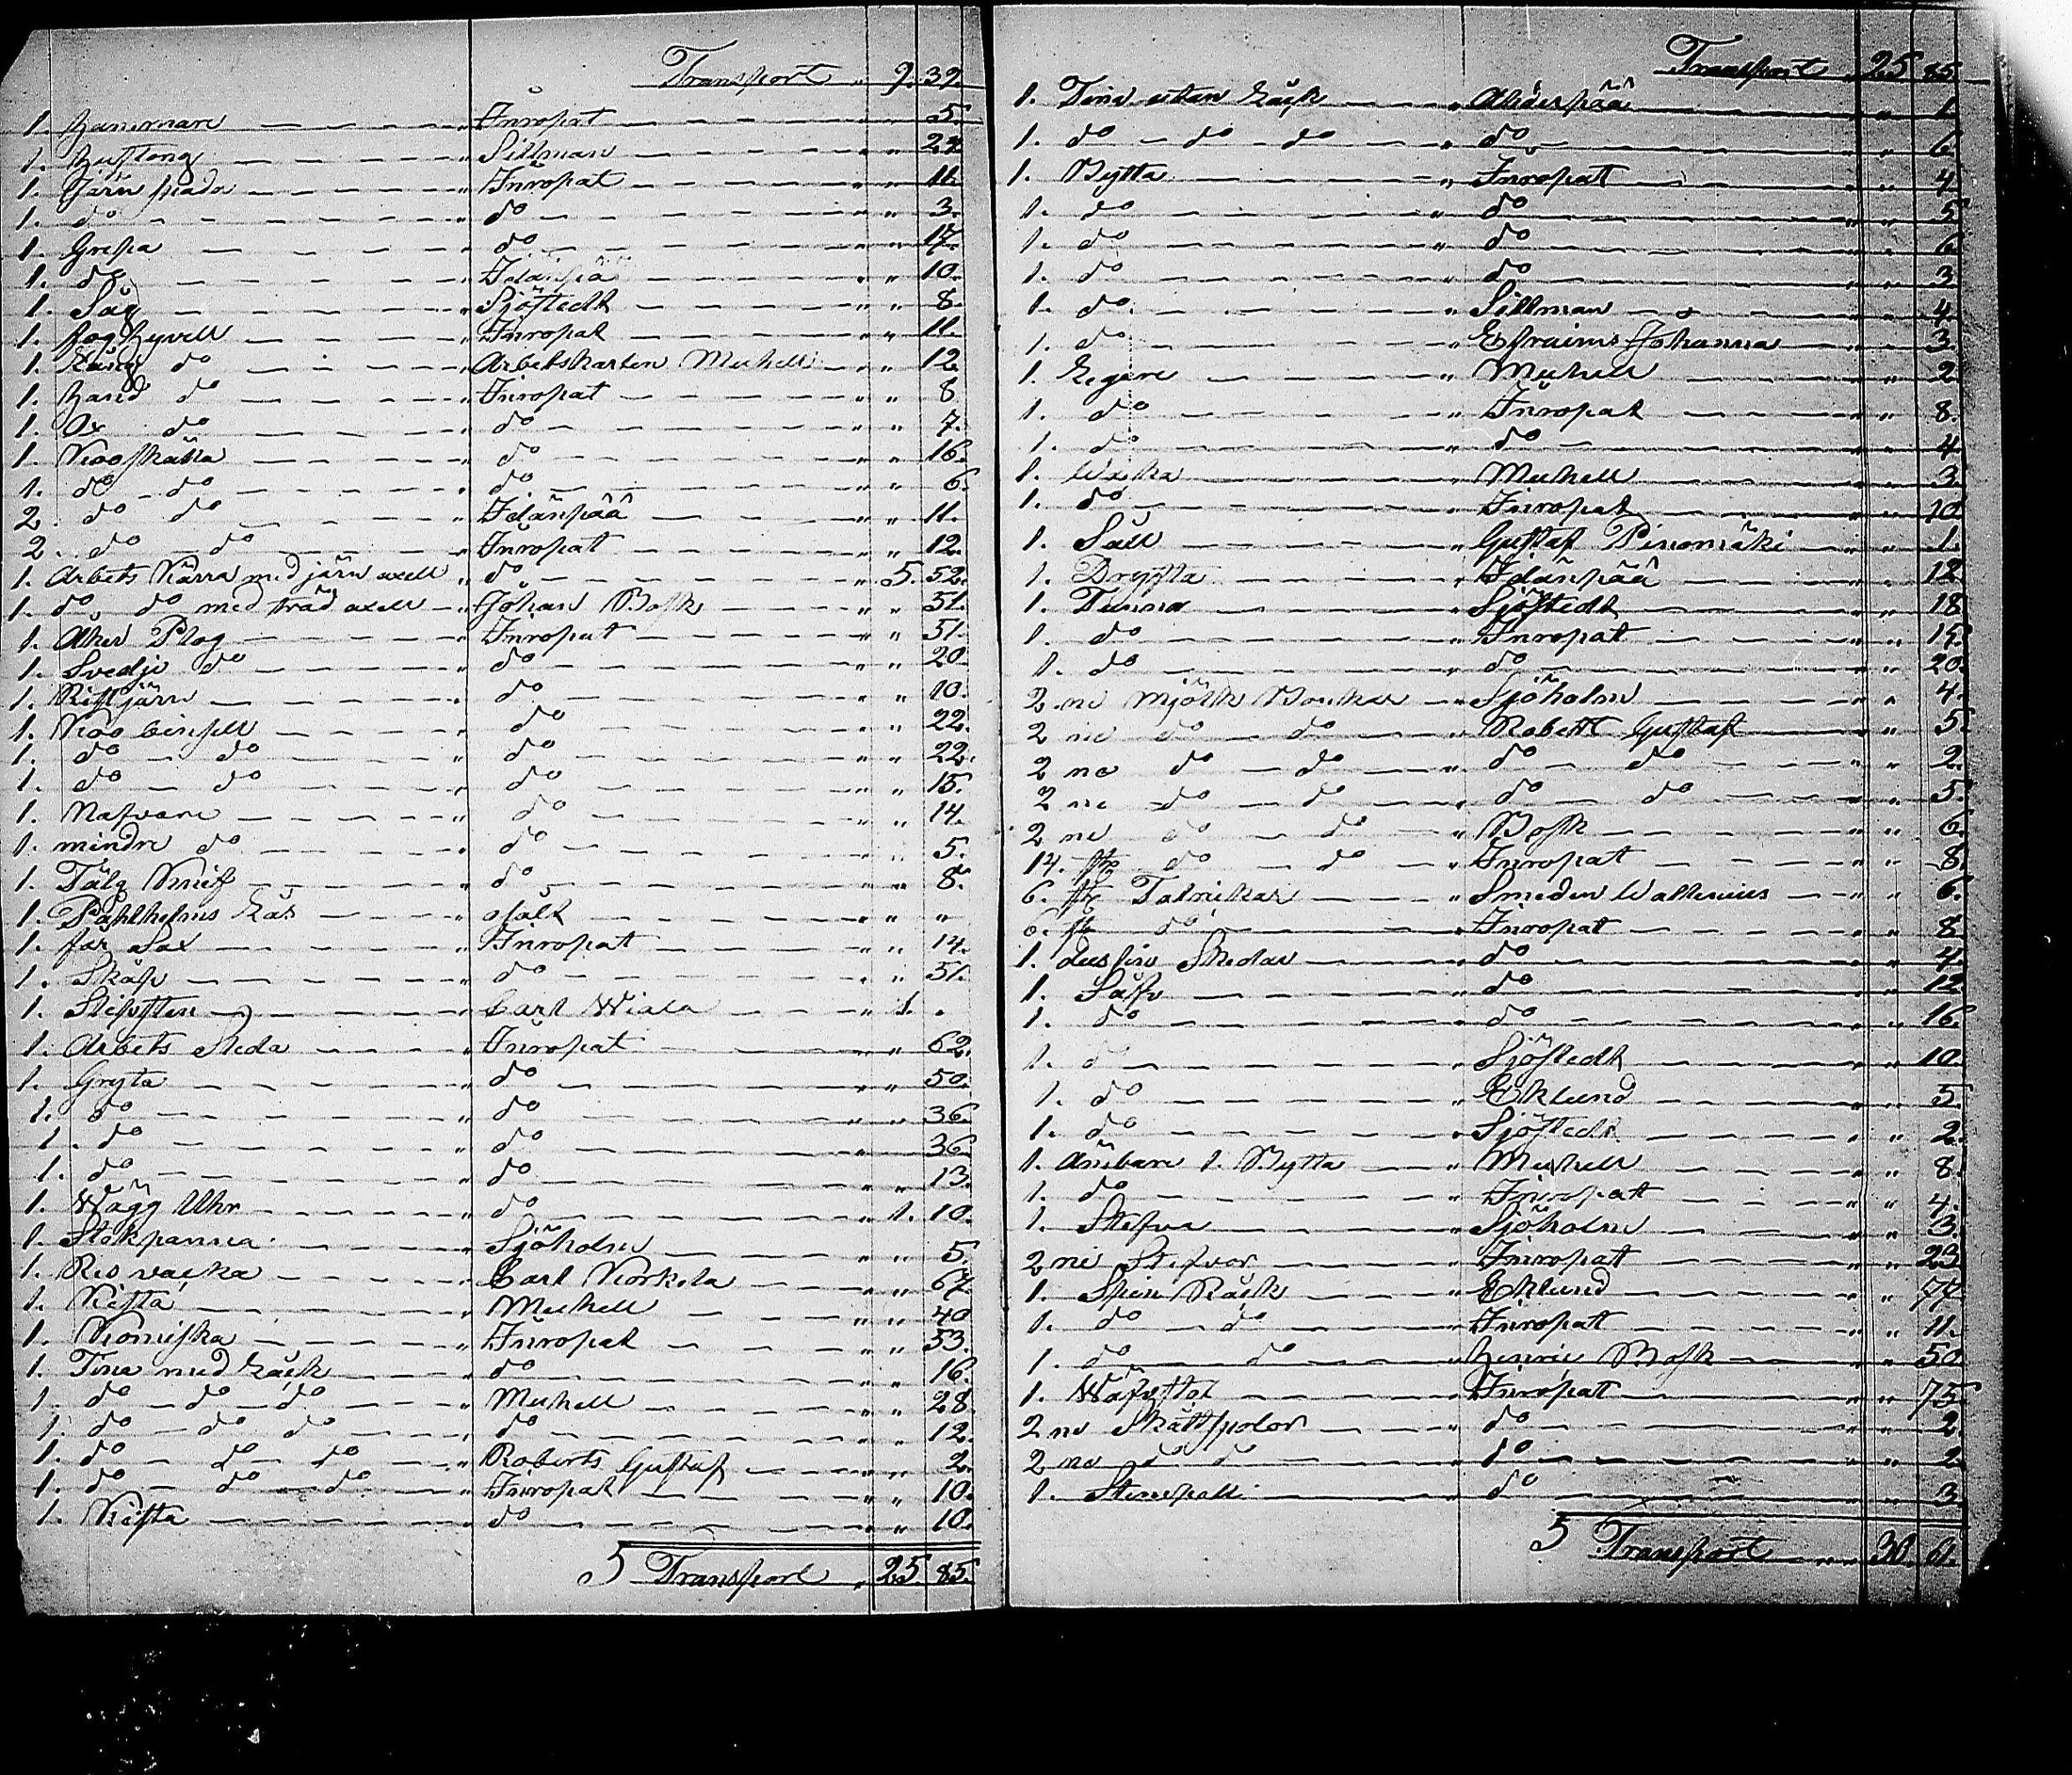 Transport " 9. 39.
1. Hammare " Inropat " " 5.
1. Huftång " Sillman " " 22
1. Järn spada " Inropat " " 11.
1. do " do " " 3.
1. Grepa " do " " 17.
1. do " Idänpää " " 10.
1. Såg " Sjöstedt " " 8.
1. foghyvell " Inropat " " 11.
1. Lång do " Arbetskarlen Michell " " 12.
1. Hand do " Inropat " " 8
1. Ox do " do " " 7.
1. Kooskälla " do " " 16.
1. do do " do " " 6.
2. do do " Idänpää " " 11.
2. do do " Inropat " " 12.
1. Arbets Kärra med järn axell " do " 5. 52.
1. do do med träd axell " Johan Bosk " " 51.
1. Åker Plog " Inropat " " 51.
1. Svedje do " do " " 20.
1. Ristjärn " do " " 10.
1. Koo bindsell " do " " 22.
1. do do " do " " 22.
1. do do " do " " 15.
1. Nafvare " do " " 14.
1. mindre do " do " " 5.
1. Tälg Knif " do " " 8.
1. Påhlhelms Lås " osålt " " "
1. får Sax " Inropat " " 14.
1. Skåp " do " " 51.
1. Slipsten " Carl Wiala " 1. "
1. Arbets Sleda " Inropat " " 62.
1. Gryta " do " " 50.
1. do " do " " 36.
1. do " do " " 36.
1. do " do " " 13.
1. Wägg Uhr " do " 1. 10.
1. Stekpanna " Sjöholm " " 5.
1. Res väska " Carl Korkela " " 67.
1. Kista " Michell " " 40
1. Komiska " Inropat " " 53.
1. Tina med Låck " do " " 16.
1. do do do " Michell " " 28.
1. do do do " do " " 12.
1. do do do " Roberts Gustaf " " 2.
1. do do do " Inropat " " 10.
1. Kista " do " " 10.
5 Transport " 25. 85.
Transport " 25 85
1. Tina utan Låck " Ahdespää " " 1.
1. do do do " do " " 6.
1. Bytta " Inropat " " 4.
1. do " do " " 5.
1. do " do " " 6.
1. do " do " " 3
1. do " Sillman " " 4.
1. do " Efraims Johanna " " 3.
1. Legare " Michell " " 2.
1. do " Inropat " " 8.
1. do " do " " 4.
1. " Michell " " 3
1. do " Inropat " " 10
1. Såll " Gustaf Pinomäki " " 1.
1. Dryfta " Idänpää " " 12
1. Tunna " Sjöstedt " " 18
1. do " Inropat " " 15.
1. do " do " " 20.
2 ne Mjölk Bunkar " Sjöholm " " 4.
2 ne do do " Robertt Gustaf " " 5.
2 ne do do " do do " " 2.
2 ne do do " do do " " 5.
2 ne do do " Bosk " " 6.
14. st. do do " Inropat " " 8.
6. st. Talrickar " Smeden Wallenius " " 6.
6. st. do " Inropat " " 8.
1. dussin Skedar " do " " 4.
1. Såff " do " " 12.
1. do " do " " 16.
1. do " Sjöstedt " " 10.
1. do " Eklund " " 5.
1. do " Sjöstedt " " 2.
1. Ämbare 1. Bytta " Michell " " 8.
1. do " Inropatt " " 4.
1. Stefva " Sjöholm " " 3.
2 ne Stefvor " Inropatt " " 23.
1. Spin Råck " Eklund " " 77.
1. do do " Inropatt " " 11.
1. do do " Henric Bosk " " 50
1. Wäfstol " Inropatt " " 75.
2 ne Skåttspolor " do " " 2.
2 ne do do " do " " 2.
1. " do " " 3.
5 Transport " 30. 6.